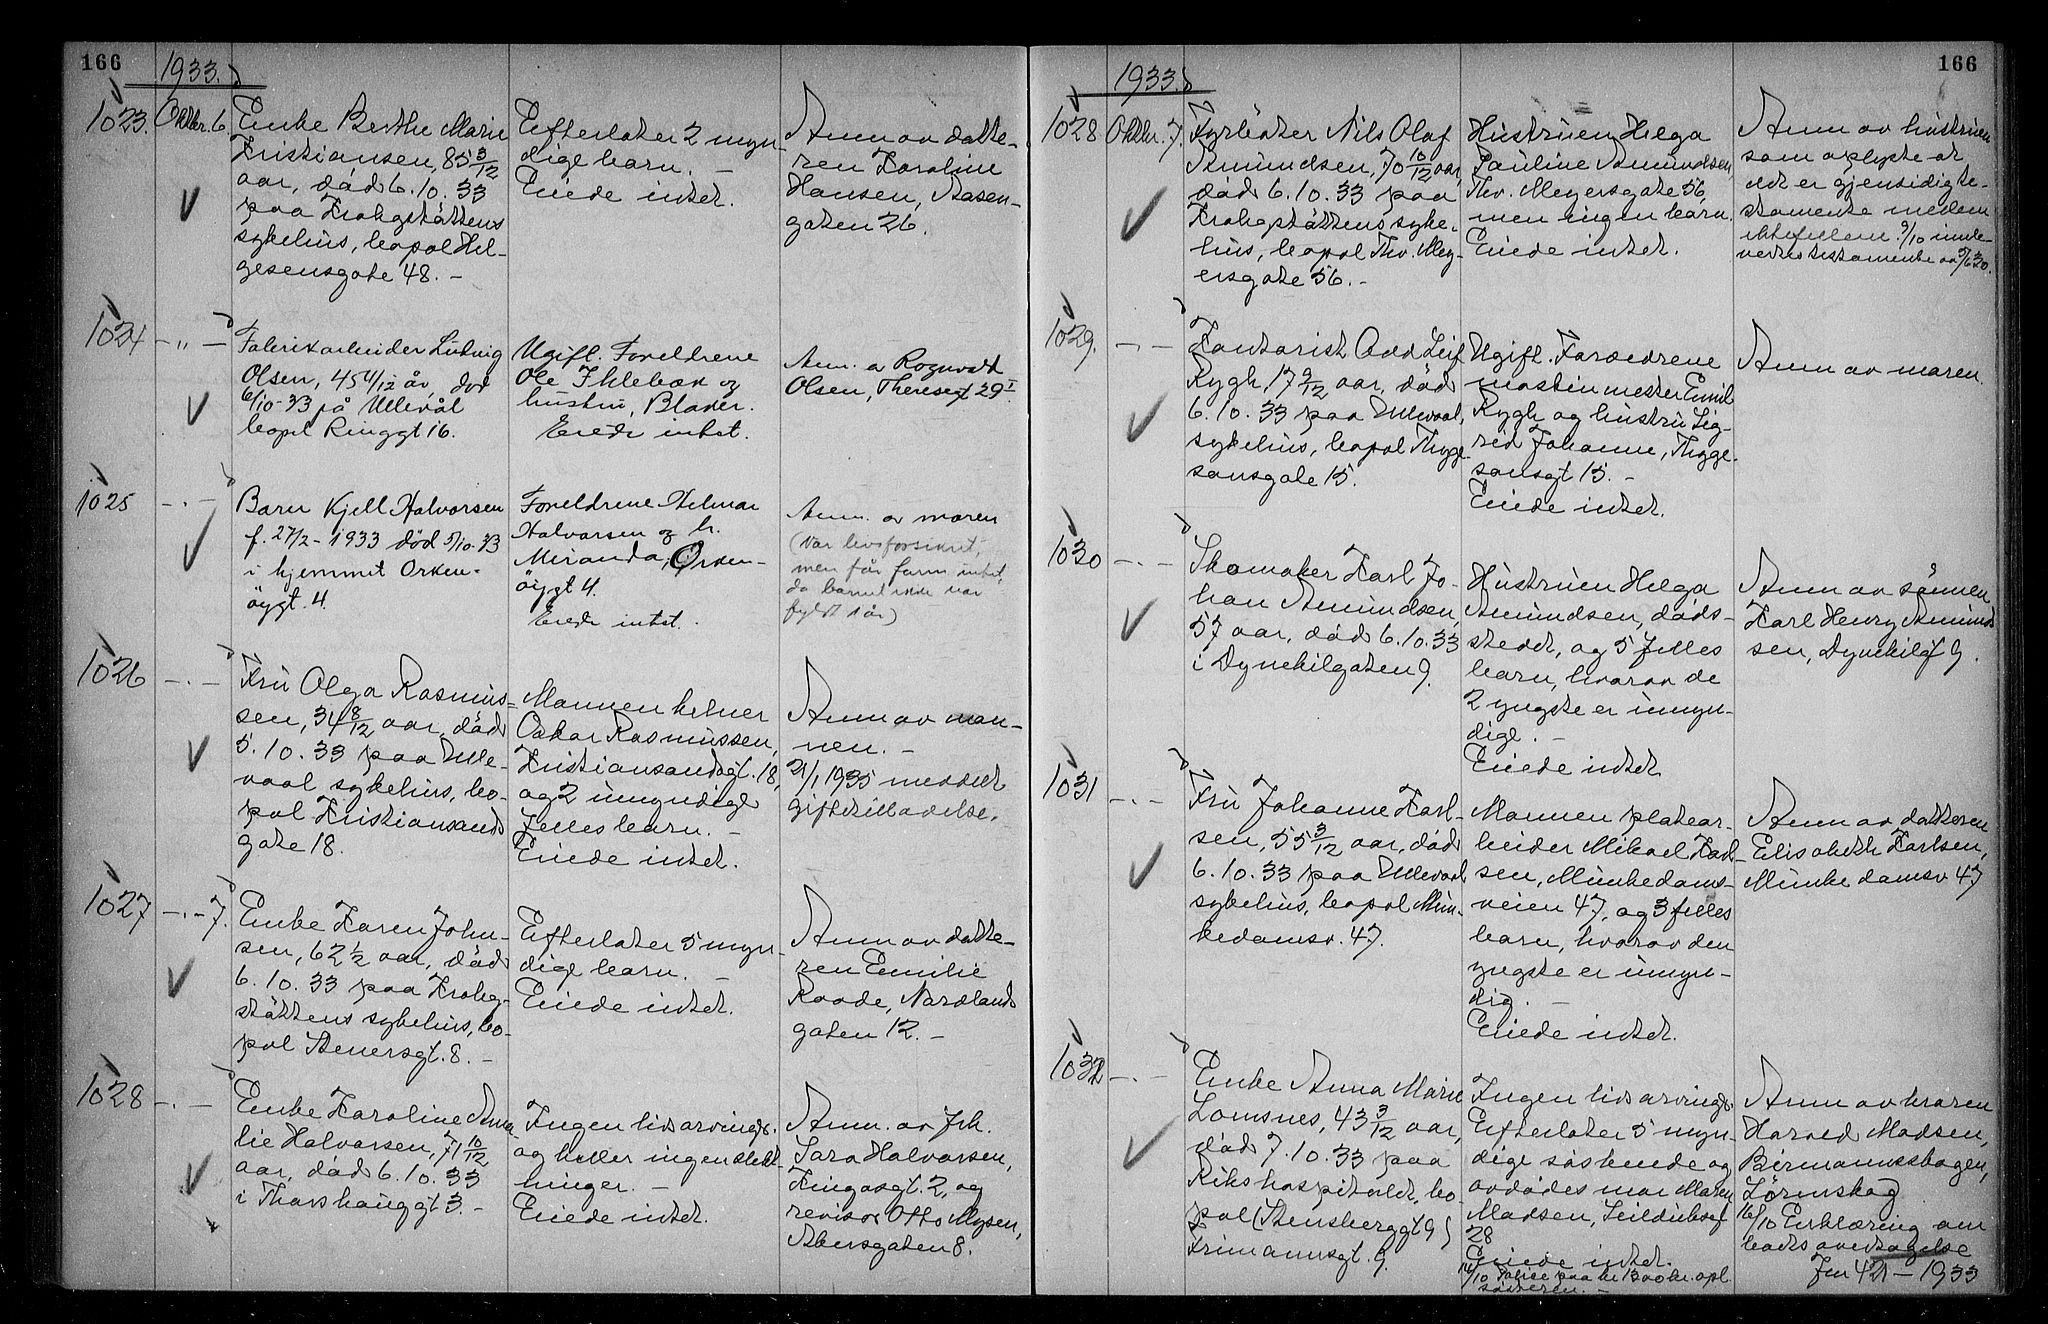 166
1933.
1023. Oktbr. 6.
Enke Berthe Marie
Kristiansen, 85 3/12
aar, död 6.10.33
paa Krohgstöttens
sykehus, bopæl Hel-
gesensgate 48. –
Efterlater 2 myn-
dige barn. –
Eiede intet.
Anm av datte-
ren Karoline
Hansen, Aasen-
gaten 26.
1024 – " –
Fabrikarbeider Ludvig
Olsen, 45 11/12 år, död
6/10-33 på Ullevål
bopel Ringgt 16.
Ugift. Foreldrene
Ole Ihlebæk og
hustru, Blaker.
Eiede intet.
Anm. av Rognvald
Olsen, Theresegt 29 I
1025 – . –
Barn Kjell Halvorsen
f. 27/2 - 1933 död 5/10-33
i hjemmet Orken-
öygt. 4.
Foreldrene Hilmar
Halvorsen og h.
Miranda, Orken-
öygt 4.
Eiede intet.
Anm. av moren
(Var livsforsikret,
men får farm intet,
da barnet ikke var
fyldt 1 år)
1026 – . –
Fru Olga Rasmus-
sen, 34 8/12 aar, död
5.10.33 paa Ulle-
vaal sykehus, bo-
pæl Kristiansands
gate 18.
Mannen kelner
Oskar Rasmussen,
Kristiansandsgt. 18,
og 2 umyndige
felles barn. –
Eiede intet.
Anm av man-
nen. –
21/1 1935 meddelt
giftetilladelse.
1027 – . – 7.
Enke Karen John-
sen, 62 1/2 aar, död
6.10.33 paa Krohg-
stöttens sykehus, bo-
pæl Stenersgt. 8. –
Efterlater 5 myn-
dige barn. –
Eiede intet.
Anm av datte-
ren Emilie
Raade, Nordlands
gaten 12. –
1028 – . –
Enke Karoline Ama-
lie Halvorsen, 71 10/12
aar, död 6.10.33
i Thorshauggt 3. –
Ingen livsarving.
og heller ingen slekt-
ninger. –
Eiede intet.
Anm. av frk.
Sara Halvorsen,
Fingasgt. 2, og
revisor Otto Mysen,
Akersgaten 8.
166
1933.
1028 Oktbr. 7.
Fyrböter Nils Olaf
Amundsen, 70 10/12 aar,
död 6.10.33 paa
Krohgstöttens syke-
hus, bopæl Thv. Mey-
ersgate 56. –
Hustruen Helga
Pauline Amundsen,
Thv. Meyersgate 56,
men ingen barn.
Eiede intet.
Anm av hustruen
som oplyste at
det er gjensidig te-
stamente mellem
ektefellene 9/10 innle-
vertes testamente av 5/6 30.
1029. – . –
Kontorist Odd Leif
Rygh, 17 9/12 aar, död
6.10.33 paa Ullevaal
sykehus, bopæl Thygge-
sonsgate 15.
Ugift. Foreldrene
maskinmester Emil
Rygh og hustru Sig-
rid Johanne, Thygge-
sonsgt 15. –
Eiede intet.
Anm av moren.
1030 – . –
Skomaker Karl Jo-
han Amundsen,
57 aar, död 6.10.33
i Dynekilgaten 9.
Hustruen Helga
Amundsen, döds-
stedet, og 5 felles
barn, hvorav de
2 yngste er umyn-
dige. –
Eiede intet.
Anm av sönnen
Karl Henry Amund-
sen, Dynekilgt 9.
1031 – . –
Fru Johanne Karl-
sen, 55 3/12 aar, död
6.10.33 paa Ullevaal
sykehus, bopæl Mun-
kedamsv. 47.
Mannen platear-
beider Mikael Karl-
sen, Munkedams-
veien 47, og 3 felles
barn, hvorav den
yngste er umyn-
dig. –
Eiede intet.
Anm av datteren
Elisabeth Karlsen,
Munkedamsv 47
1032 – . –
Enke Anna Marie
Lomsnes, 43 3/12 aar,
död 7.10.33 paa
Rikshospitalet, bo-
pæl (Stensberggt 9)
Frimannsgt. 9.
Ingen livsarving.
Efterlater 5 myn-
dige söskende og
avdödes mor Maren
Madsen, Seilduksgt
28
Eiede intet.
14/10 Police paa kr 1300 kr. opl.
sösteren. –
Anm av broren
Harald Madsen,
Birmannsskogen,
Lörenskog
16/10 Erklæring om
boets overtagelse
Jnr 421 – 1933